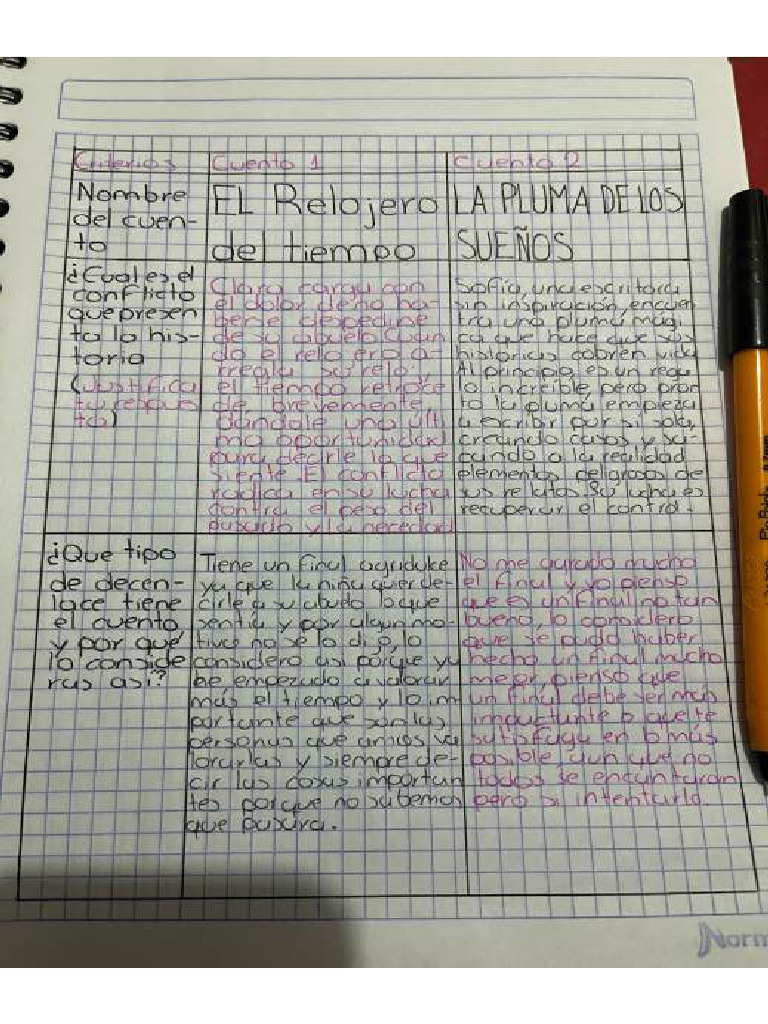 Criterios
Cuento 1
Cuento 2
Nombre
del cuen-
to
EL Relojero
del tiempo
LA PLUMA DE LOS
SUEÑOS
¿Cual es el
conflicto
que presen
ta la his-
toria
(Justifica
tu respues
ta)
Clara carga con
el dolor de no ha-
berse despedirse
de su abuelo Cuan
do el relojero a-
rregla su reloj,
el tiempo retroce
de brevemente
dandole una últi
ma oportunidad
para decirle lo que
siente. El conflicto
radica en su lucha
contra el peso del
pasado y la necedad
Sofia, una escritora
sin inspiración, encuen
tra una pluma mági
ca que hace que sus
historias cobren vida
Al principio, es un rega
lo increíble pero pron
to la pluma empieza
a escribir por si sola,
creando casos y sa-
cando a la realidad
elementos peligrosos de
sus relatos. Su lucha es
recuperar el control.
¿Que tipo
de decen-
lace tiene
el cuento
y por qué
lo conside
ras asi?
Tiene un final agridulce
ya que la niña quer de-
cirle a su abuelo lo que
sentia y por algun mo-
tivo no se lo dijo, lo
considero asi porque yo
he empezado a valorar
más el tiempo y lo im
portante que son las
personas que amas va
lorarlas y siempre de-
cir las cosas importan
tes porque no sabemos
que pasara.
No me agrado mucho
el final y yo pienso
que es un final no tan
bueno, lo considero
que se pudo haber
hecho un final mucho
mejor pienso que
un final debe ser mas
impactante o que te
satisfaga en lo mas
posible, aun que no
todos se encantaran
pero si intentarlo.
Norm